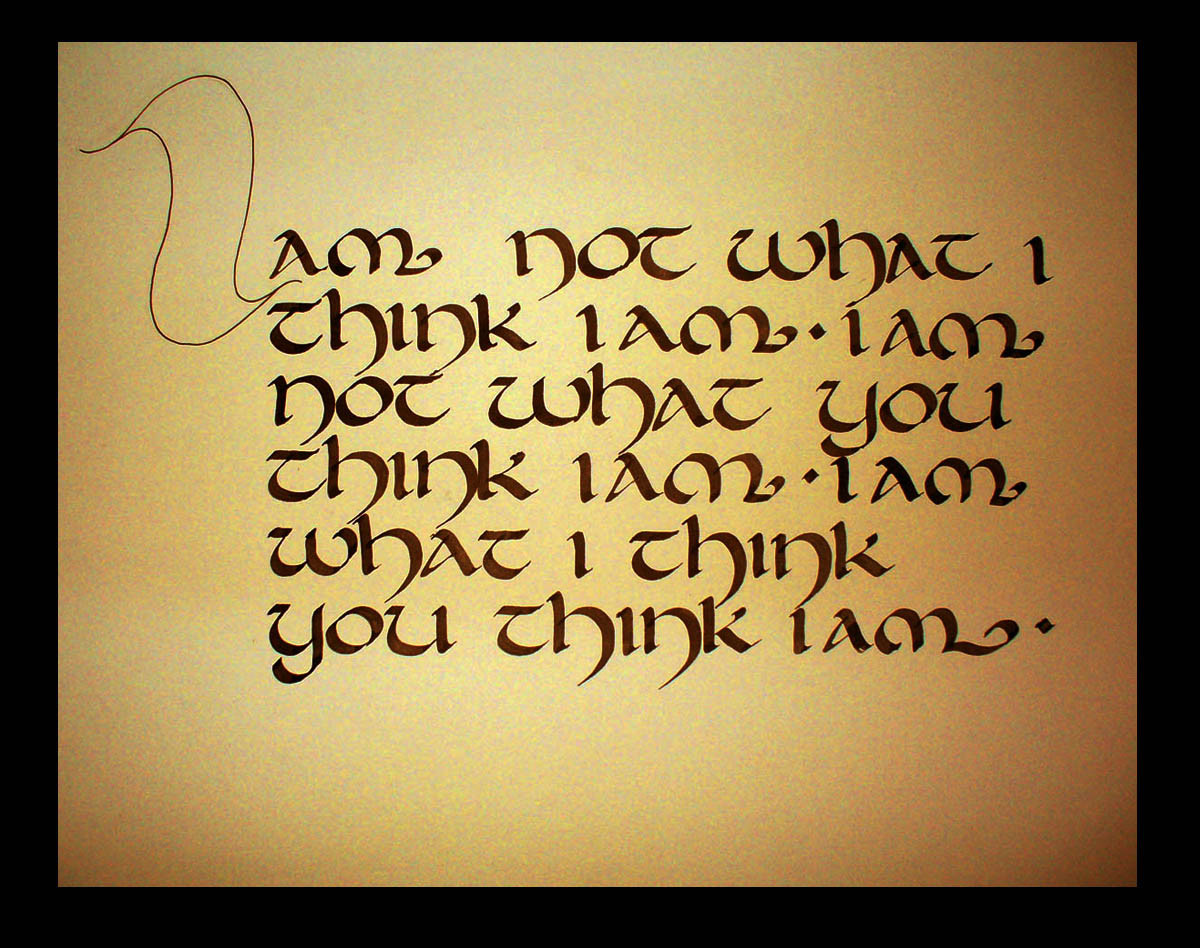 I am not what i
think i am · i am
not what you
think i am · i am
what i think
you think i am ·